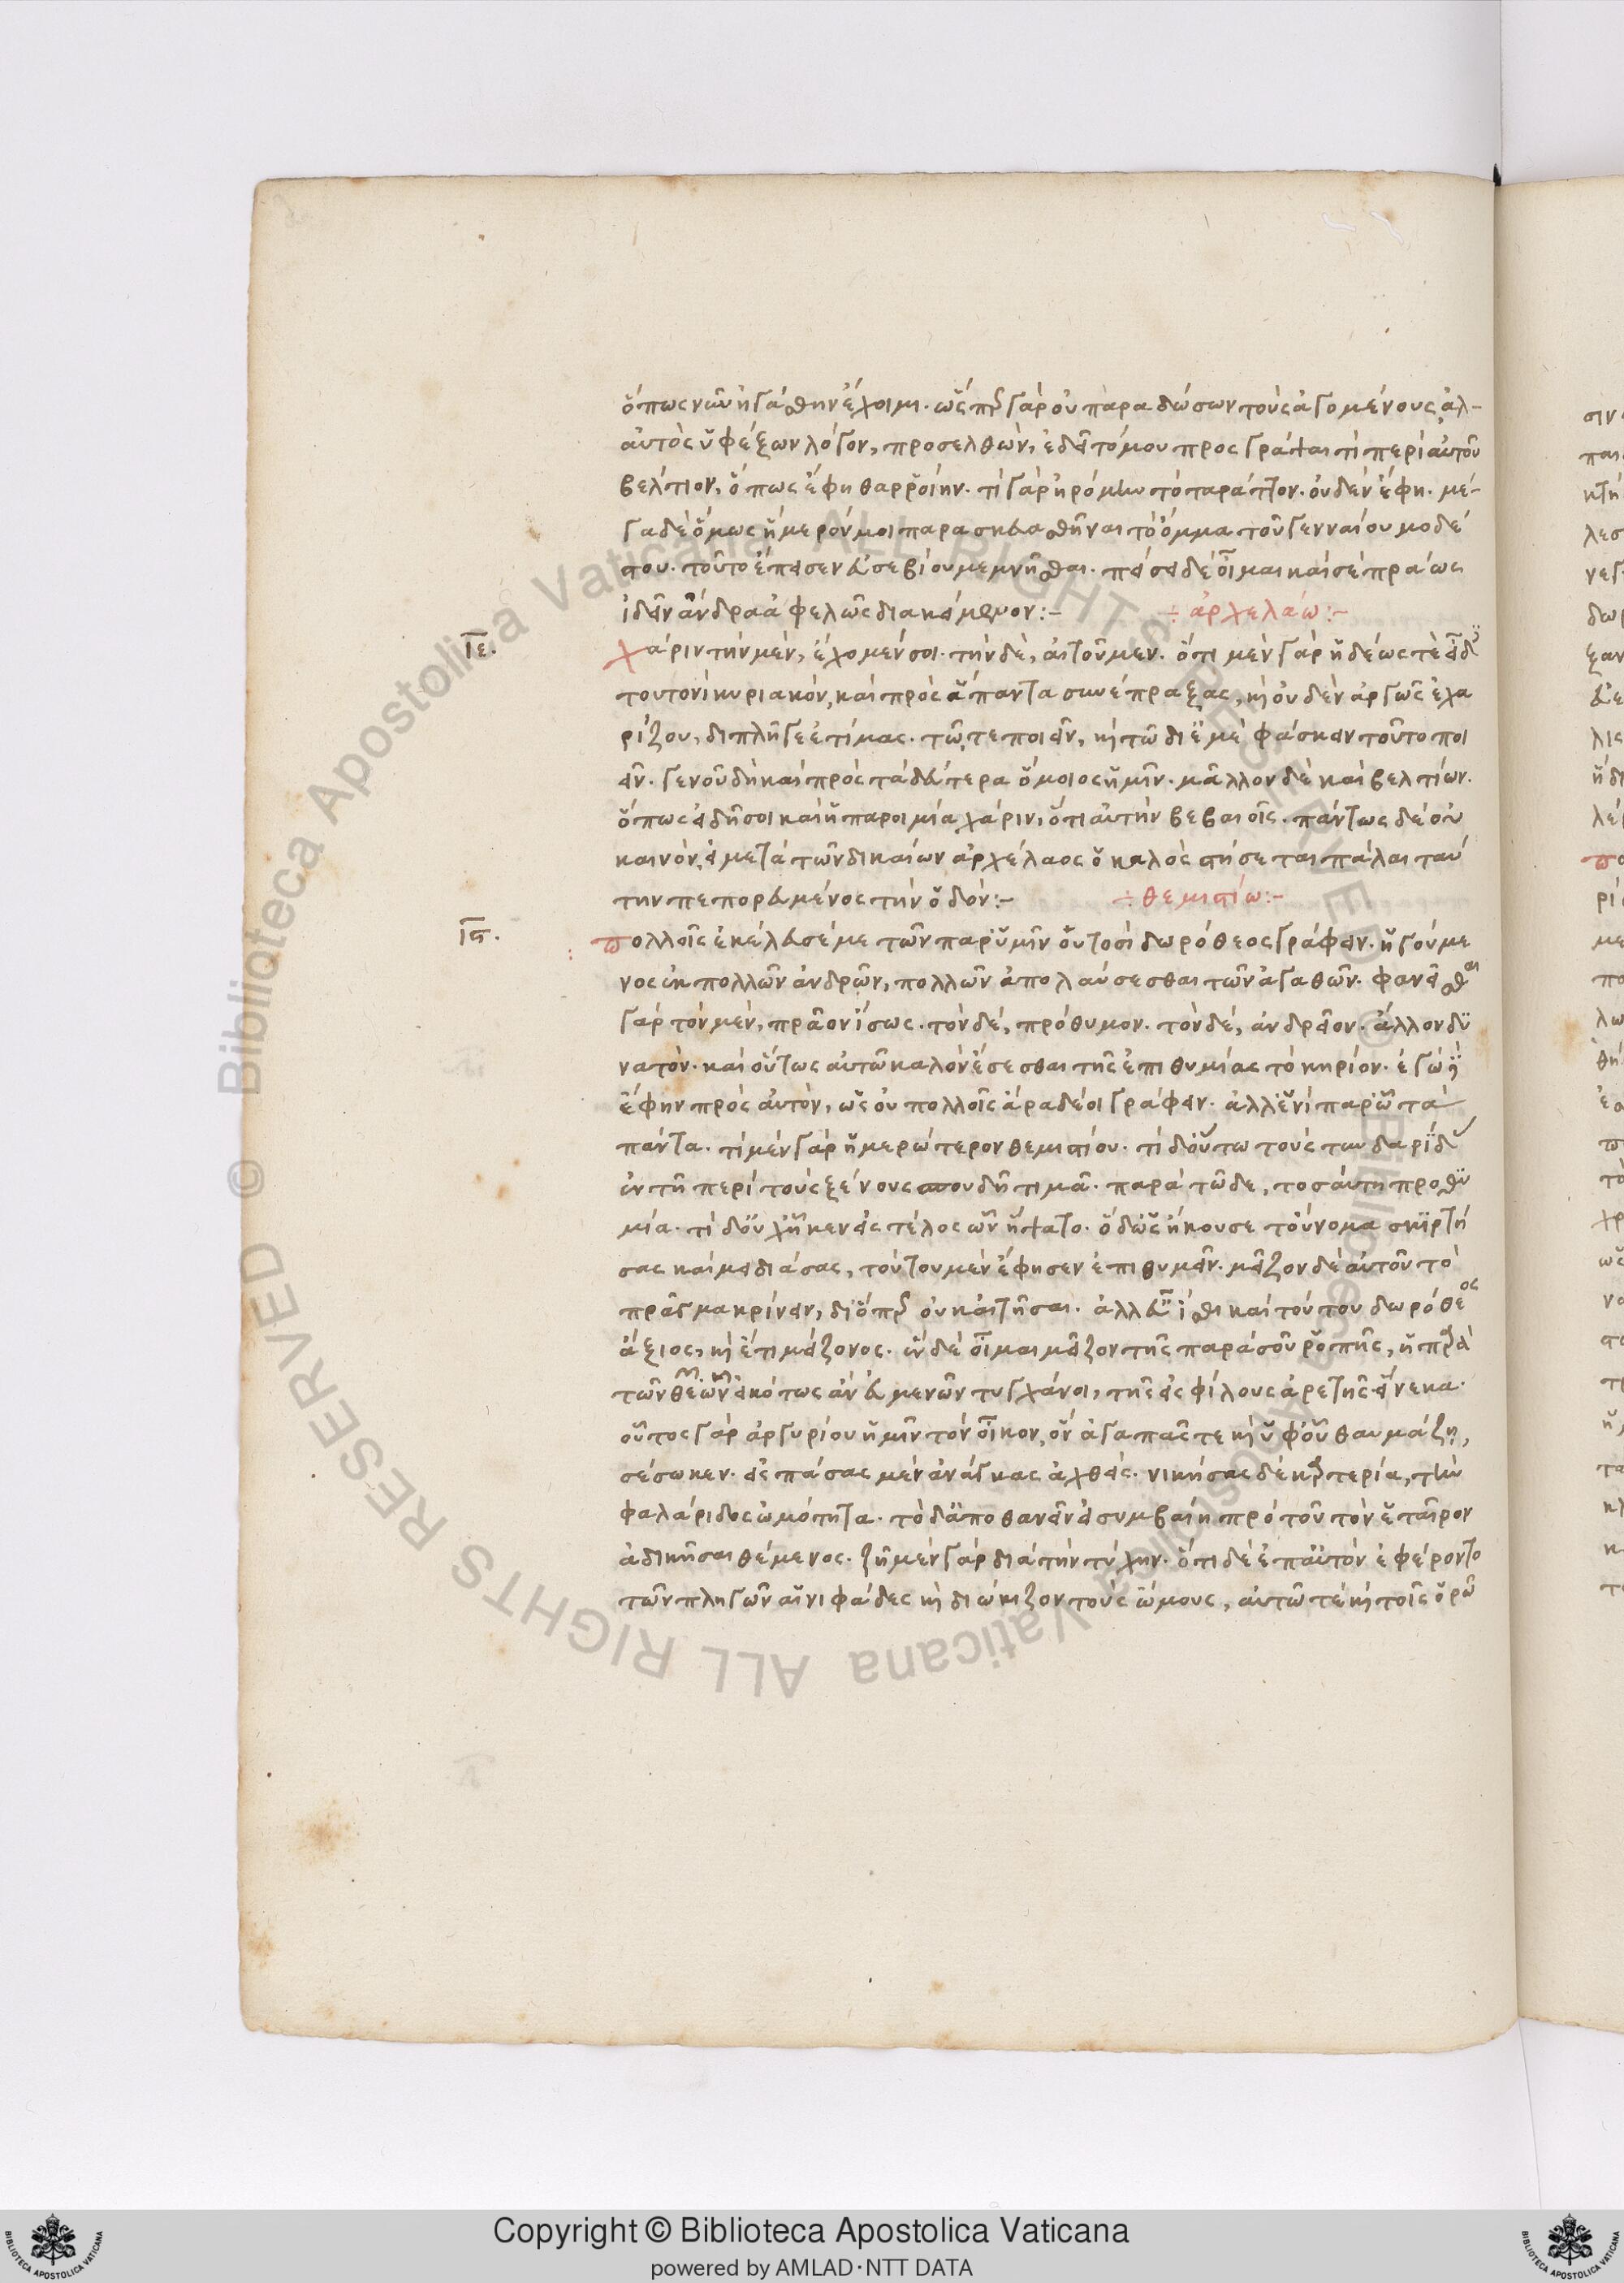 ὅπως νῦν ἠγάσθην ἔχοιμι. ὥσπερ γὰρ οὐ παραδώσων τοὺς ἀγομένους ἀλλ
αὐτὸς ὑφέξων λόγον, προσελθὼν, ἐδεῖτό μου προσγράψαι τὶ περὶ αὐτοῦ
βέλτιον, ὅπως ἔφη θαρροίην. τί γὰρ ἠρόμην τὸ ταράττον. οὐδὲν ἔφη. μέ-
γα δὲ ὅμως ἥμερόν μοι παρασκευασθῆναι τὸ ὄμμα τοῦ γενναίου μοδέ
στου. τοῦτο ἔπεισεν εὐσεβίου μεμνῆσθαι. πείσει δὲ οἶμαι καὶ σὲ πράως
ἰδεῖν ἄνδρα ἀφελῶς διακείμενον:-
÷ ἀρχελάω:-
ιε.
χάριν τὴν μὲν, ἔχομέν σοι. τὴν δὲ, αἰτοῦμεν. ὅτι μὲν γὰρ ἡδέως τὲ εἶδες
τουτονὶ κυριακόν, καὶ πρὸς ἅπαντα συνέπραξας, καὶ οὐδὲν ἀργῶς ἐχα
ρίζου, διπλῆ γε ἐτίμας. τῶ τε ποιεῖν, καὶ τῶ δι ἐμὲ φάσκειν τοῦτο ποι
εῖν. γενοῦ δὴ καὶ πρὸς τὰ δεύτερα ὅμοιος ἡμῖν. μᾶλλον δὲ καὶ βελτίων.
ὅπως εἰδῆ σοι καὶ ἡ παροιμία χάριν, ὅτι αὐτὴν βεβαιοῖς. πάντως δὲ οὐ
καινόν, εἰ μετὰ τῶν δικαίων ἀρχέλαος ὁ καλὸς στήσεται πάλαι ταύ
την πεπορευμένος τὴν ὁδόν:-
÷ θεμιστίω:-
ιϛ.
πολλοῖς ἐκέλευσέ με τῶν παρ ὑμῖν οὑτοσὶ δωρόθεος γράφειν. ἡγούμε
νος ἐκ πολλῶν ἀνδρῶν, πολλῶν ἀπολαύσεσθαι τῶν ἀγαθῶν. φανεῖσθαι
γὰρ τὸν μὲν, πρᾶον ἴσως. τὸν δὲ, πρόθυμον. τὸν δὲ, ἀνδρεῖον. ἄλλον δυ
νατόν. καὶ οὕτως αὐτῶ καλὸν ἔσεσθαι τῆς ἐπιθυμίας τὸ κηρίον. ἐγὼ δὲ
ἔφην πρὸς αὐτὸν, ὡς οὐ πολλοῖς ἄρα δέοι γράφειν. ἀλλ ἑνὶ παρ ὧ τὰ
πάντα. τί μὲν γὰρ ἡμερώτερον θεμιστίου. τί δ οὕτω τοὺς τυνδαρίδας
ἐν τῆ περὶ τοὺς ξένους σπουδῆ τιμᾶ. παρὰ τῶ δὲ, τοσαύτη προθυ
μία. τί δ οὐχ ἧκεν εἰς τέλος ὧν ἥψατο. ὁ δ ὡς ἤκουσε τοὔνομα σκιρτή
σας καὶ μειδιάσας, τούτου μὲν ἔφησεν ἐπιθυμεῖν. μεῖζον δὲ αὐτοῦ τὸ
πρᾶγμα κρίνειν, δι ὅπερ οὐκ αἰτῆσαι. ἀλλ εὖ ἴσθι καὶ τούτου δωρόθεος
ἄξιος, καὶ ἔτι μείζονος. ἓν δὲ οἶμαι μεῖζον τῆς παρὰ σοῦ ῥοπῆς, ἡ παρὰ
τῶν θεῶν ἧς εἰκότως ἂν εὐμενῶν τυγχάνοι, τῆς εἰς φίλους ἀρετῆς εἵνεκα.
οὗτος γὰρ ἀργυρίου ἡμῖν τὸν οἶκον, ὃν ἀγαπᾶς τε καὶ ὑφ οὗ θαυμάζη,
σέσωκεν. εἰς πάσας μὲν ἀνάγκας ἀχθείς. νικήσας δὲ καρτερία, τὴν
φαλάριδος ὠμότητα. τὸ δ ἀποθανεῖν εἰ συμβαίη πρὸ τοῦ τὸν ἑταῖρον
ἀδικῆσαι θέμενος. ζῆ μὲν γὰρ διὰ τὴν τύχην. ὅτι δὲ ἐπ αὐτὸν ἐφέροντο
τῶν πληγῶν αἱ νιφάδες καὶ διώκιζον τοὺς ὤμους, αὐτῶ τὲ καὶ τοῖς ὁρῶ
Copyright © Biblioteca Apostolica Vaticana
powered by AMLAD·NTT DATA
© Biblioteca Apostolica Vaticana ALL RIGHTS RESERVED
© Biblioteca Apostolica Vaticana ALL RIGHTS RESERVED